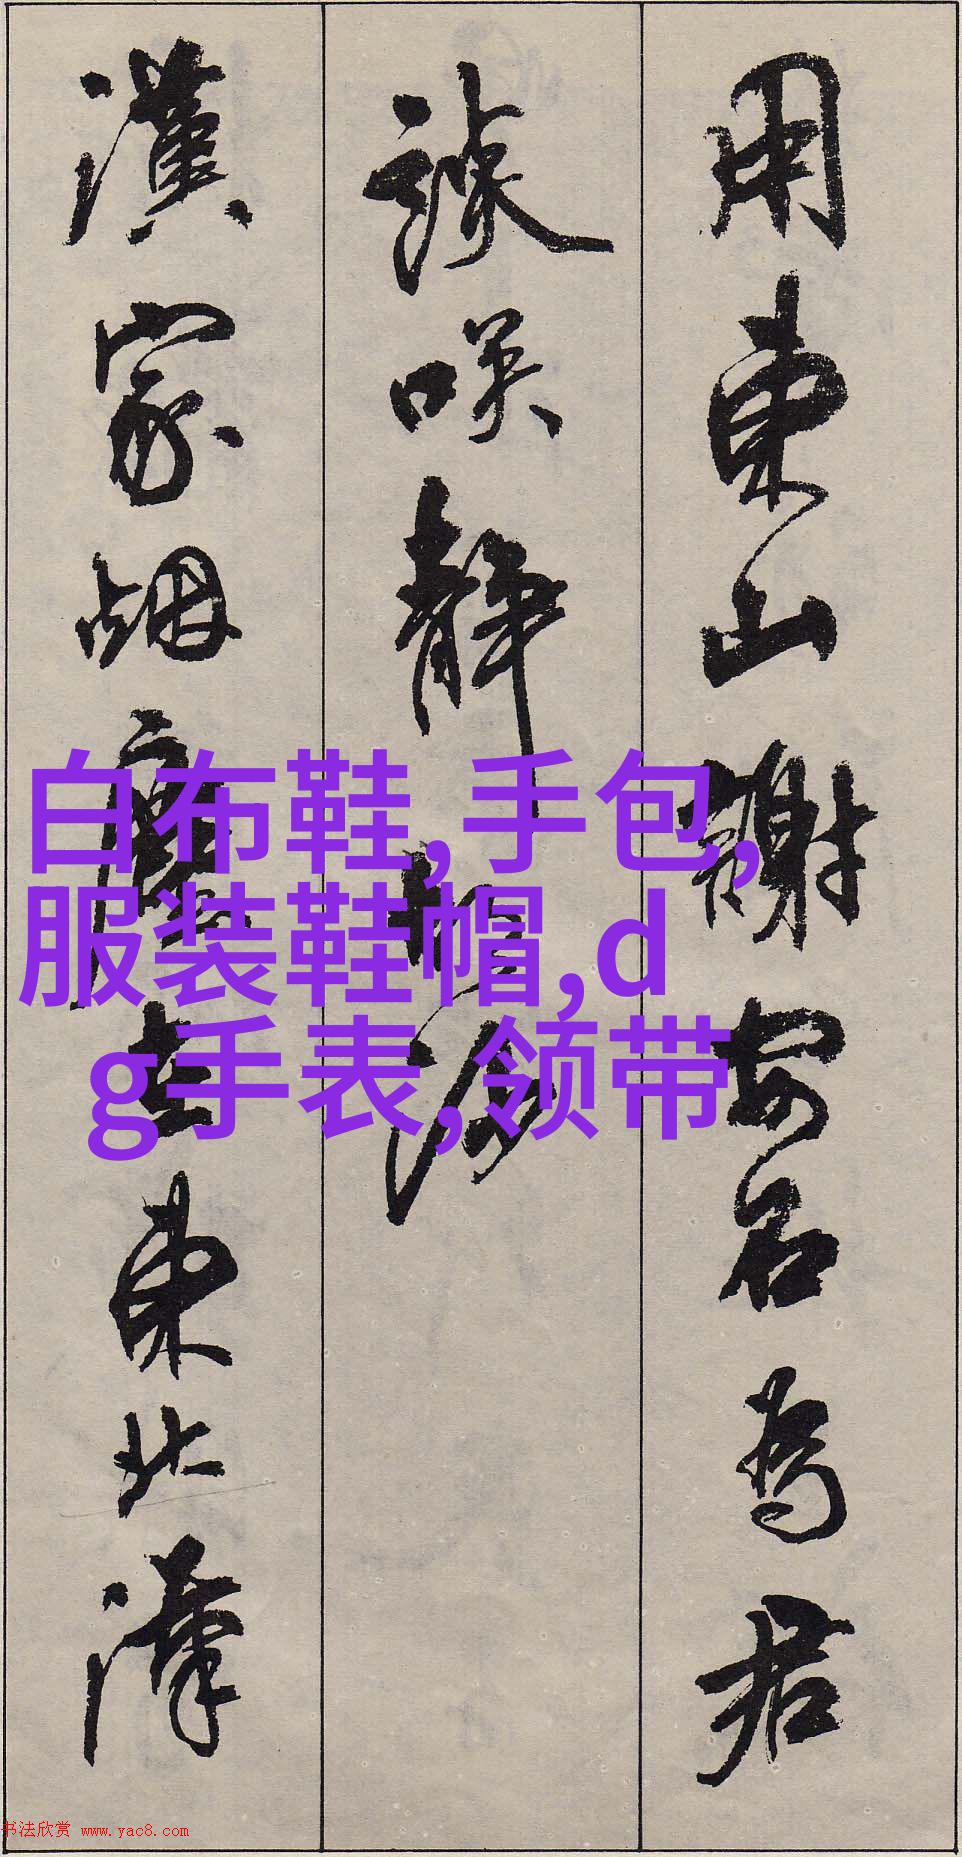 用東山謝安石為君
談笑靜胡沙
漢家烟塵在東北漢
白布鞋,手包,
服装鞋帽,d
g手表,领带
书法欣赏 www.yac8.com